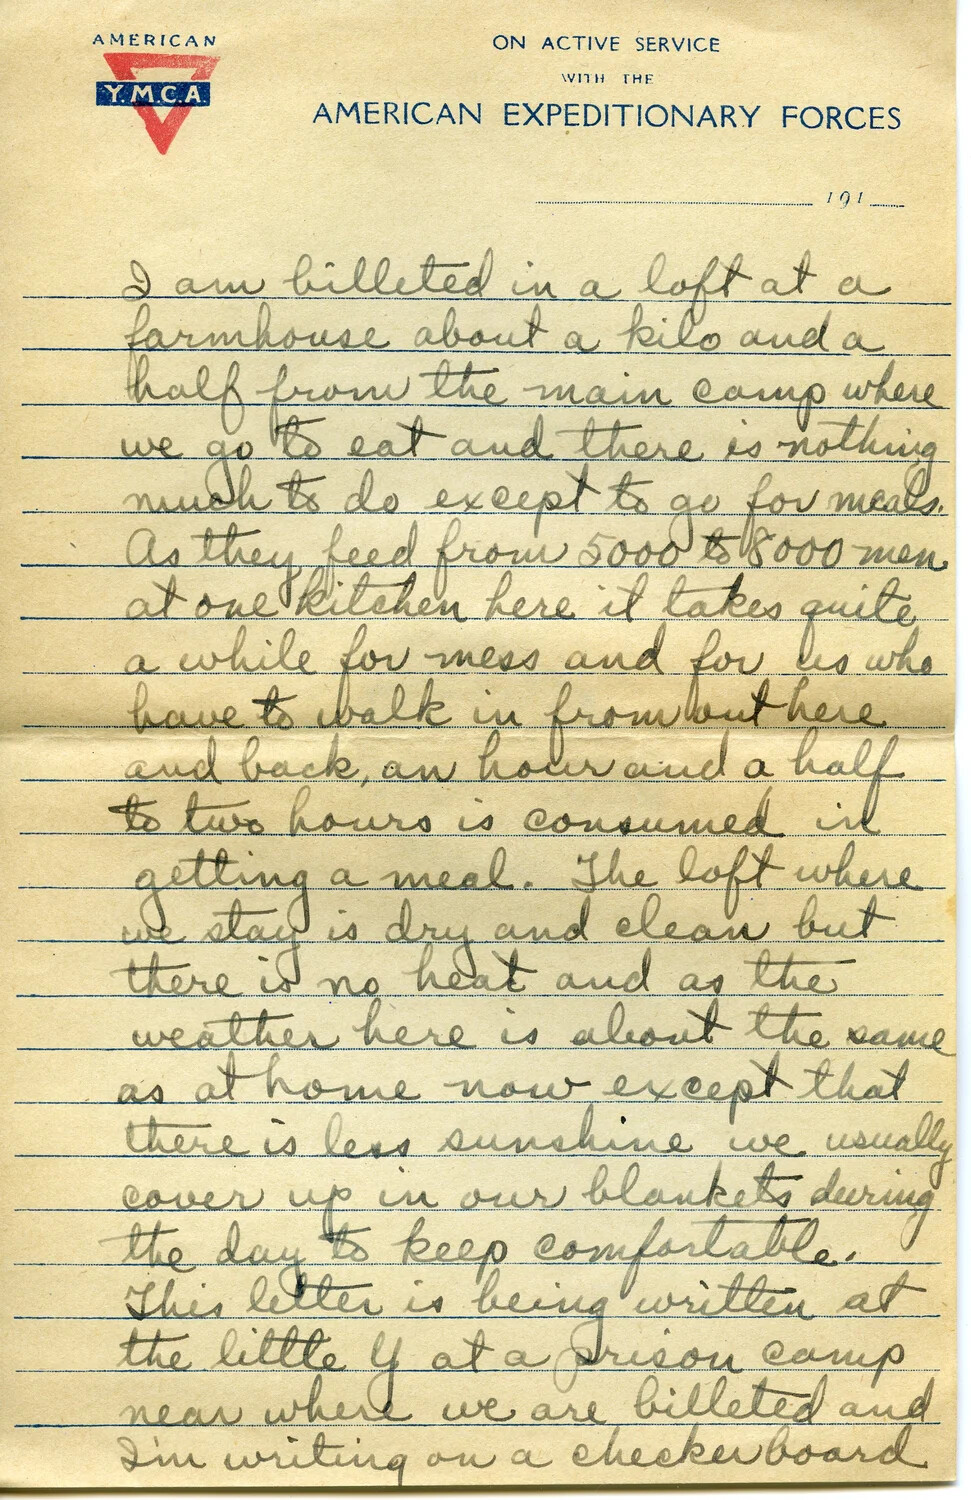 AMERICAN
Y.M.C.A.
ON ACTIVE SERVICE
WITH THE
AMERICAN EXPEDITIONARY FORCES
191
I am billeted in a loft at a
farmhouse about a kilo and a
half from the main camp where
we go to eat and there is nothing
much to do except to go for meals.
As they feed from 5000 to 8000 men
at one kitchen here it takes quite
a while for mess and for us who
have to walk in from out here
and back, an hour and a half
to two hours is consumed in
getting a meal. The loft where
we stay is dry and clean but
there is no heat and as the
weather here is about the same
as at home now except that
there is less sunshine we usually
cover up in our blankets during
the day to keep comfortable.
This letter is being written at
the little Y at a prison camp
near where we are billeted and
I'm writing on a checkerboard